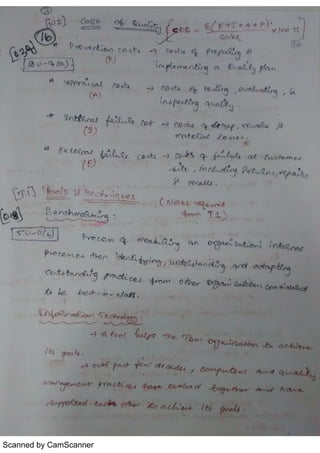 [U2] Cost of Quality { COQ = Σ(E+I+A+P) / Sales × 100 %
16
* Prevention costs → costs of Preparing &
(P)
implementing a Quality plan.
* Appraisal costs → costs of testing, evaluating, &
(A)
inspecting quality
* Internal failure cost → costs of scrap, rework &
(I)
material losses.
* External failure costs → costs of failure at customer
(E)
site, including returns, repairs
& recalls.
Tools & Techniques . . . (Notes referred
from T1)
Benchmarking :
Process of measuring an organisation's internal
Processes then identifying, understanding and adapting
outstanding practices from other organisations considered
to be best-in-class.
Information Technology :
→ A tool helps the TQM organisation to achieve
its goals.
→ over past few decades, computers and quality
management practices have evolved together and have
supported each other to achieve its goals.
Scanned by CamScanner